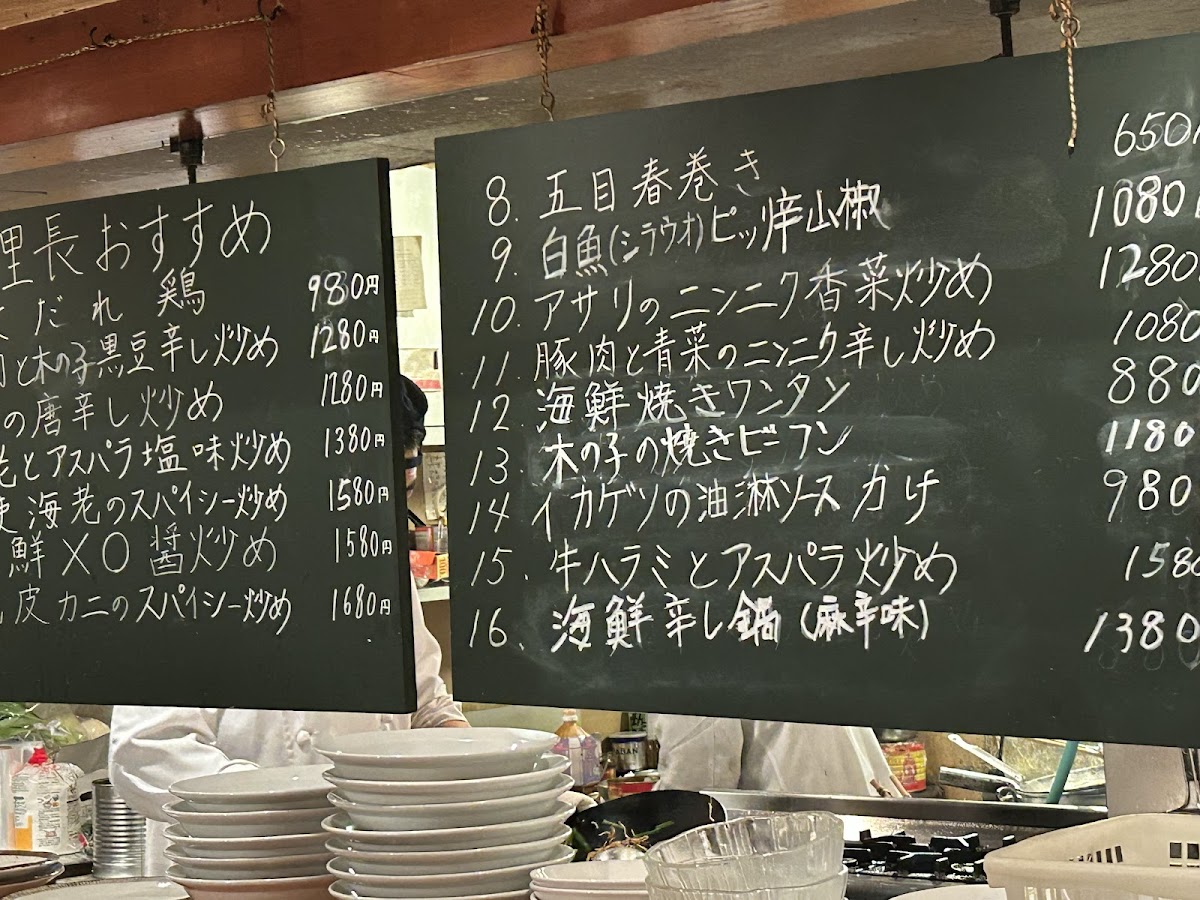 理長おすすめ
よだれ鶏 980円
肉と木の子黒豆辛し炒め 1280円
の唐辛し炒め 1280円
老とアスパラ塩味炒め 1380円
使海老のスパイシー炒め 1580円
鮮XO醤炒め 1580円
皮カニのスパイシー炒め 1680円
8. 五目春巻き 650
9. 白魚(シラウオ)ピッ烊山椒 1080
10. アサリのニンニク香菜炒め 1280
11. 豚肉と青菜のニンニク辛し炒め 1080
12. 海鮮焼きワンタン 880
13. 木の子の焼きビーフン 1180
14. イカゲソの油淋ソースガけ 980
15. 牛ハラミとアスパラ炒め 1580
16. 海鮮辛し鍋(麻辛味) 1380